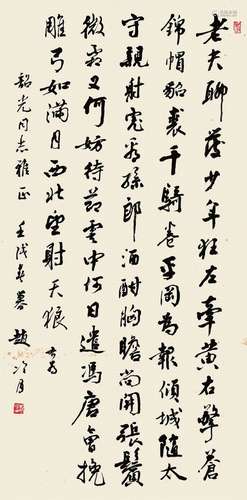 老夫聊發少年狂左牽黃右擎蒼
錦帽貂裘千騎卷平岡為報傾城隨太
守親射虎看孫郎酒酣胸膽尚開張鬢
微霜又何妨持節雲中何日遣馮唐會挽
雕弓如滿月西北望射天狼
韶光同志雅正 壬戌春暮 趙冷月